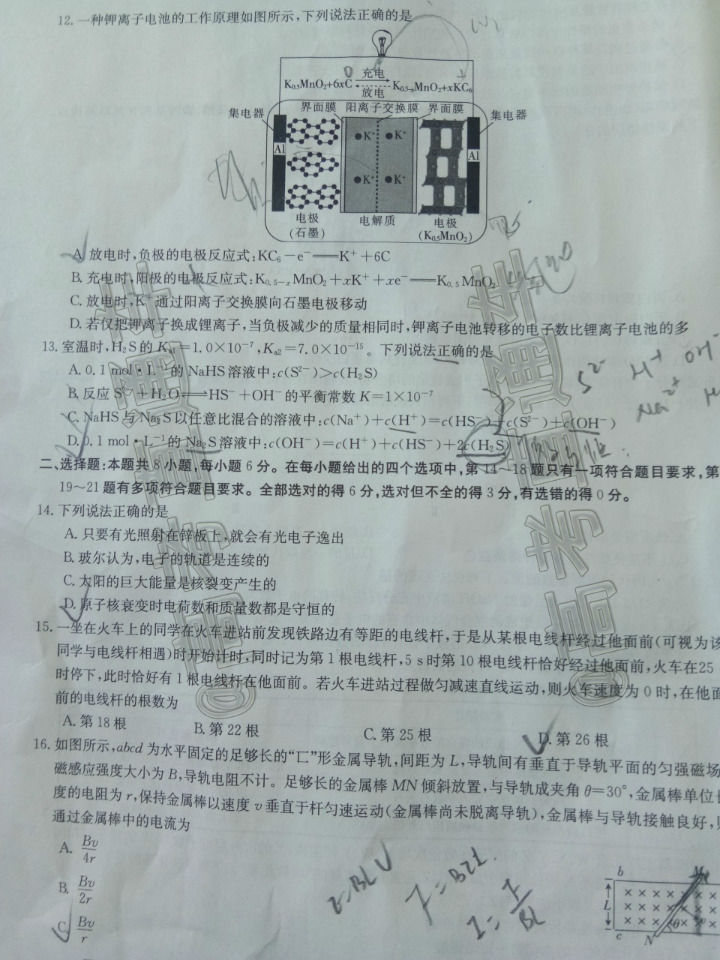 12. 一种钾离子电池的工作原理如图所示,下列说法正确的是
K₀.₅MnO₂+6xC 充电 放电 K₀.₅₋ₓMnO₂+xKC₆
集电器 界面膜 阳离子交换膜 界面膜 集电器
Al K⁺ K⁺ Al
K⁺ K⁺
电极 (石墨) 电解质 电极 (K₀.₅MnO₂)
A. 放电时,负极的电极反应式:KC₆-e⁻══K⁺+6C
B. 充电时,阳极的电极反应式:K₀.₅₋ₓMnO₂+xK⁺+xe⁻══K₀.₅MnO₂
C. 放电时,K⁺通过阳离子交换膜向石墨电极移动
D. 若仅把钾离子换成锂离子,当负极减少的质量相同时,钾离子电池转移的电子数比锂离子电池的多
13. 室温时,H₂S的Kₐ₁=1.0×10⁻⁷,Kₐ₂=7.0×10⁻¹⁵。下列说法正确的是
A. 0.1 mol·L⁻¹的NaHS溶液中:c(S²⁻)>c(H₂S)
B. 反应S²⁻+H₂O⇌HS⁻+OH⁻的平衡常数K=1×10⁻⁷
C. NaHS与Na₂S以任意比混合的溶液中:c(Na⁺)+c(H⁺)=c(HS⁻)+c(S²⁻)+c(OH⁻)
D. 0.1 mol·L⁻¹的Na₂S溶液中:c(OH⁻)=c(H⁺)+c(HS⁻)+2c(H₂S)
S²⁻ H⁺ OH⁻
Na⁺
二、选择题:本题共8小题,每小题6分。在每小题给出的四个选项中,第14~18题只有一项符合题目要求,第
19~21题有多项符合题目要求。全部选对的得6分,选对但不全的得3分,有选错的得0分。
14. 下列说法正确的是
A. 只要有光照射在锌板上,就会有光电子逸出
B. 玻尔认为,电子的轨道是连续的
C. 太阳的巨大能量是核裂变产生的
D. 原子核衰变时电荷数和质量数都是守恒的
15. 一坐在火车上的同学在火车进站前发现铁路边有等距的电线杆,于是从某根电线杆经过他面前(可视为该
同学与电线杆相遇)时开始计时,同时记为第1根电线杆,5 s时第10根电线杆恰好经过他面前,火车在25
时停下,此时恰好有1根电线杆在他面前。若火车进站过程做匀减速直线运动,则火车速度为0时,在他面
前的电线杆的根数为
A. 第18根 B. 第22根 C. 第25根 D. 第26根
16. 如图所示,abcd为水平固定的足够长的“匚”形金属导轨,间距为L,导轨间有垂直于导轨平面的匀强磁场
磁感应强度大小为B,导轨电阻不计。足够长的金属棒MN倾斜放置,与导轨成夹角θ=30°,金属棒单位
度的电阻为r,保持金属棒以速度v垂直于杆匀速运动(金属棒尚未脱离导轨),金属棒与导轨接触良好,
通过金属棒中的电流为
A. Bv/4r
B. Bv/2r
C. Bv/r
b L c N θ
@高考直通车
@高考直通车